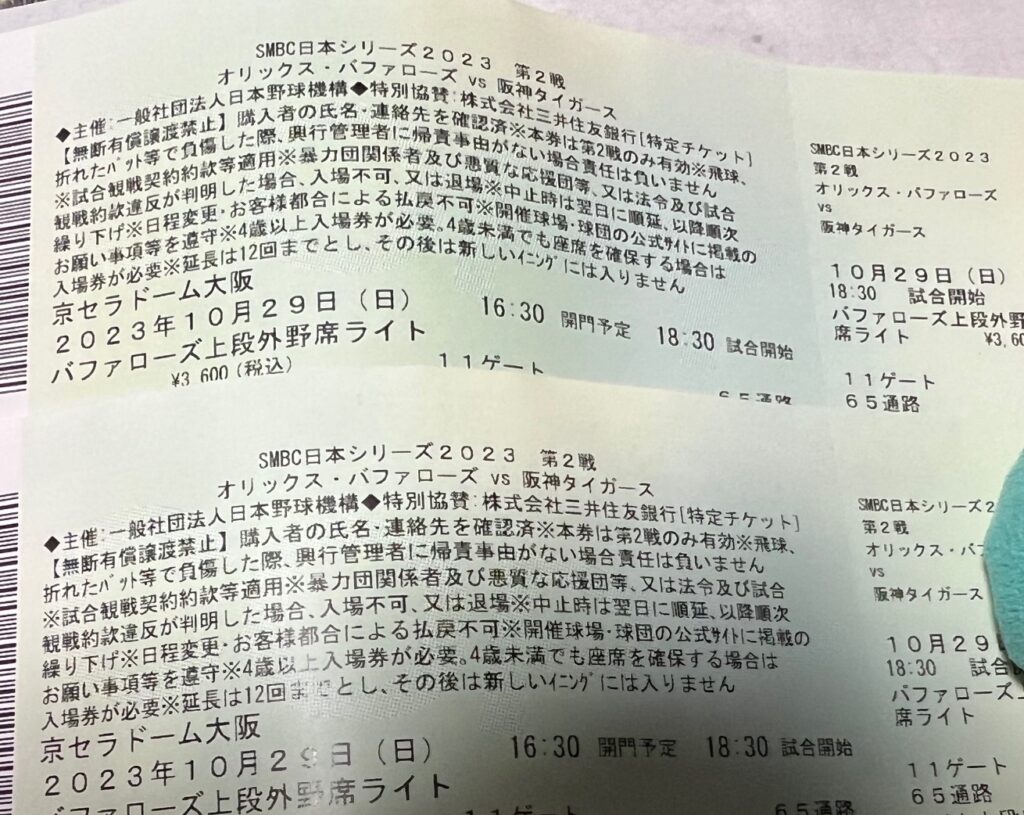 SMBC日本シリーズ2023 第2戦
オリックス・バファローズ vs 阪神タイガース
◆主催:一般社団法人日本野球機構◆特別協賛:株式会社三井住友銀行[特定チケット]
【無断有償譲渡禁止】購入者の氏名・連絡先を確認済※本券は第2戦のみ有効※飛球、
折れたバット等で負傷した際、興行管理者に帰責事由がない場合責任は負いません
※試合観戦契約約款等適用※暴力団関係者及び悪質な応援団等、又は法令及び試合
観戦約款違反が判明した場合、入場不可、又は退場※中止時は翌日に順延、以降順次
繰り下げ※日程変更・お客様都合による払戻不可※開催球場・球団の公式サイトに掲載の
お願い事項等を遵守※4歳以上入場券が必要。4歳未満でも座席を確保する場合は
入場券が必要※延長は12回までとし、その後は新しいイニングには入りません
京セラドーム大阪
2023年10月29日(日) 16:30 開門予定 18:30 試合開始
バファローズ上段外野席ライト
¥3,600(税込) 11ゲート 65通路
SMBC日本シリーズ2023
第2戦
オリックス・バファローズ
vs
阪神タイガース
10月29日(日)
18:30 試合開始
バファローズ上段外野
席ライト ¥3,60
11ゲート
65通路
SMBC日本シリーズ2023 第2戦
オリックス・バファローズ vs 阪神タイガース
◆主催:一般社団法人日本野球機構◆特別協賛:株式会社三井住友銀行[特定チケット]
【無断有償譲渡禁止】購入者の氏名・連絡先を確認済※本券は第2戦のみ有効※飛球、
折れたバット等で負傷した際、興行管理者に帰責事由がない場合責任は負いません
※試合観戦契約約款等適用※暴力団関係者及び悪質な応援団等、又は法令及び試合
観戦約款違反が判明した場合、入場不可、又は退場※中止時は翌日に順延、以降順次
繰り下げ※日程変更・お客様都合による払戻不可※開催球場・球団の公式サイトに掲載の
お願い事項等を遵守※4歳以上入場券が必要。4歳未満でも座席を確保する場合は
入場券が必要※延長は12回までとし、その後は新しいイニングには入りません
京セラドーム大阪
2023年10月29日(日) 16:30 開門予定 18:30 試合開始
バファローズ上段外野席ライト
11ゲート 65通路
SMBC日本シリーズ2
第2戦
オリックス・バフ
vs
阪神タイガース
10月29
18:30 試合
バファローズ
席ライト
11ゲート
65通路